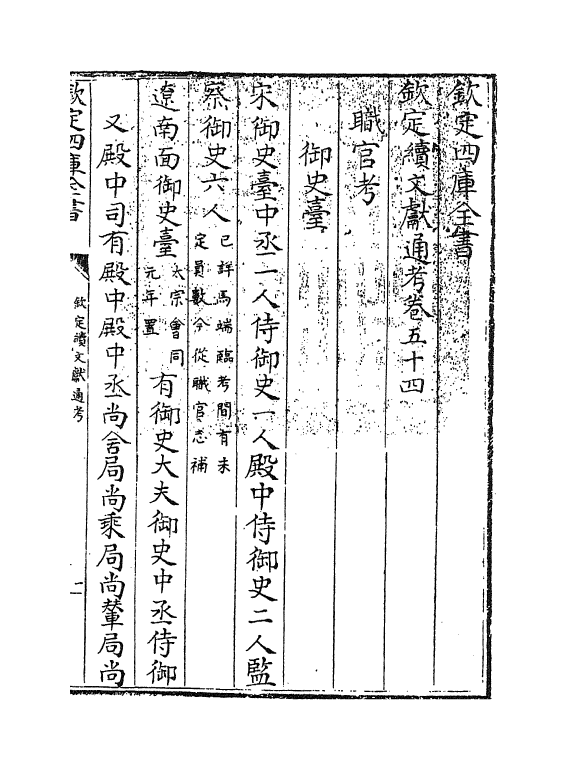 欽定四庫全書
欽定續文獻通考卷五十四
職官考
御史臺
宋御史臺中丞一人侍御史一人殿中侍御史二人監
察御史六人已詳馬端臨考間有未定員數今從職官志補
遼南面御史臺太宗會同元年置有御史大夫御史中丞侍御
又殿中司有殿中殿中丞尚舍局尚乘局尚輦局尚
欽定四庫全書
欽定續文獻通考